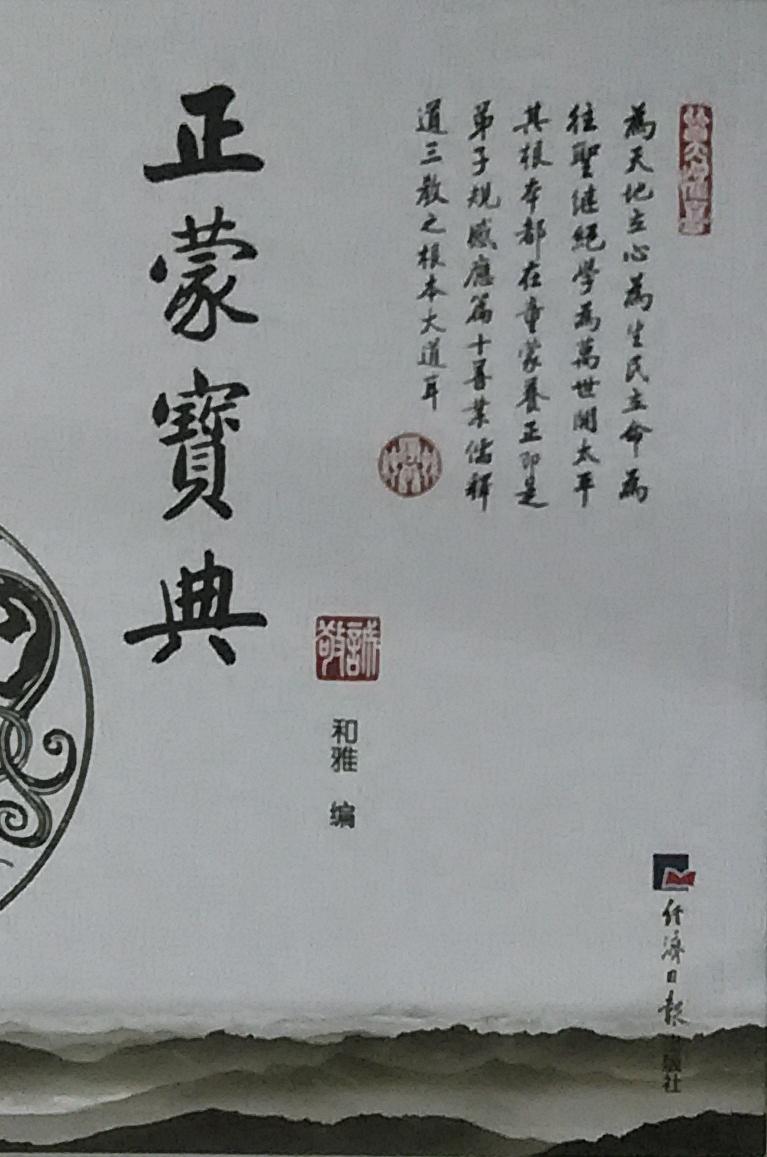 為天地立心為生民立命為
往聖继絕學為萬世開太平
其根本都在童蒙養正即是
弟子規感應篇十善業儒釋
道三教之根本大道耳
正蒙寶典
誠敬
和雅 编
经濟日報出版社